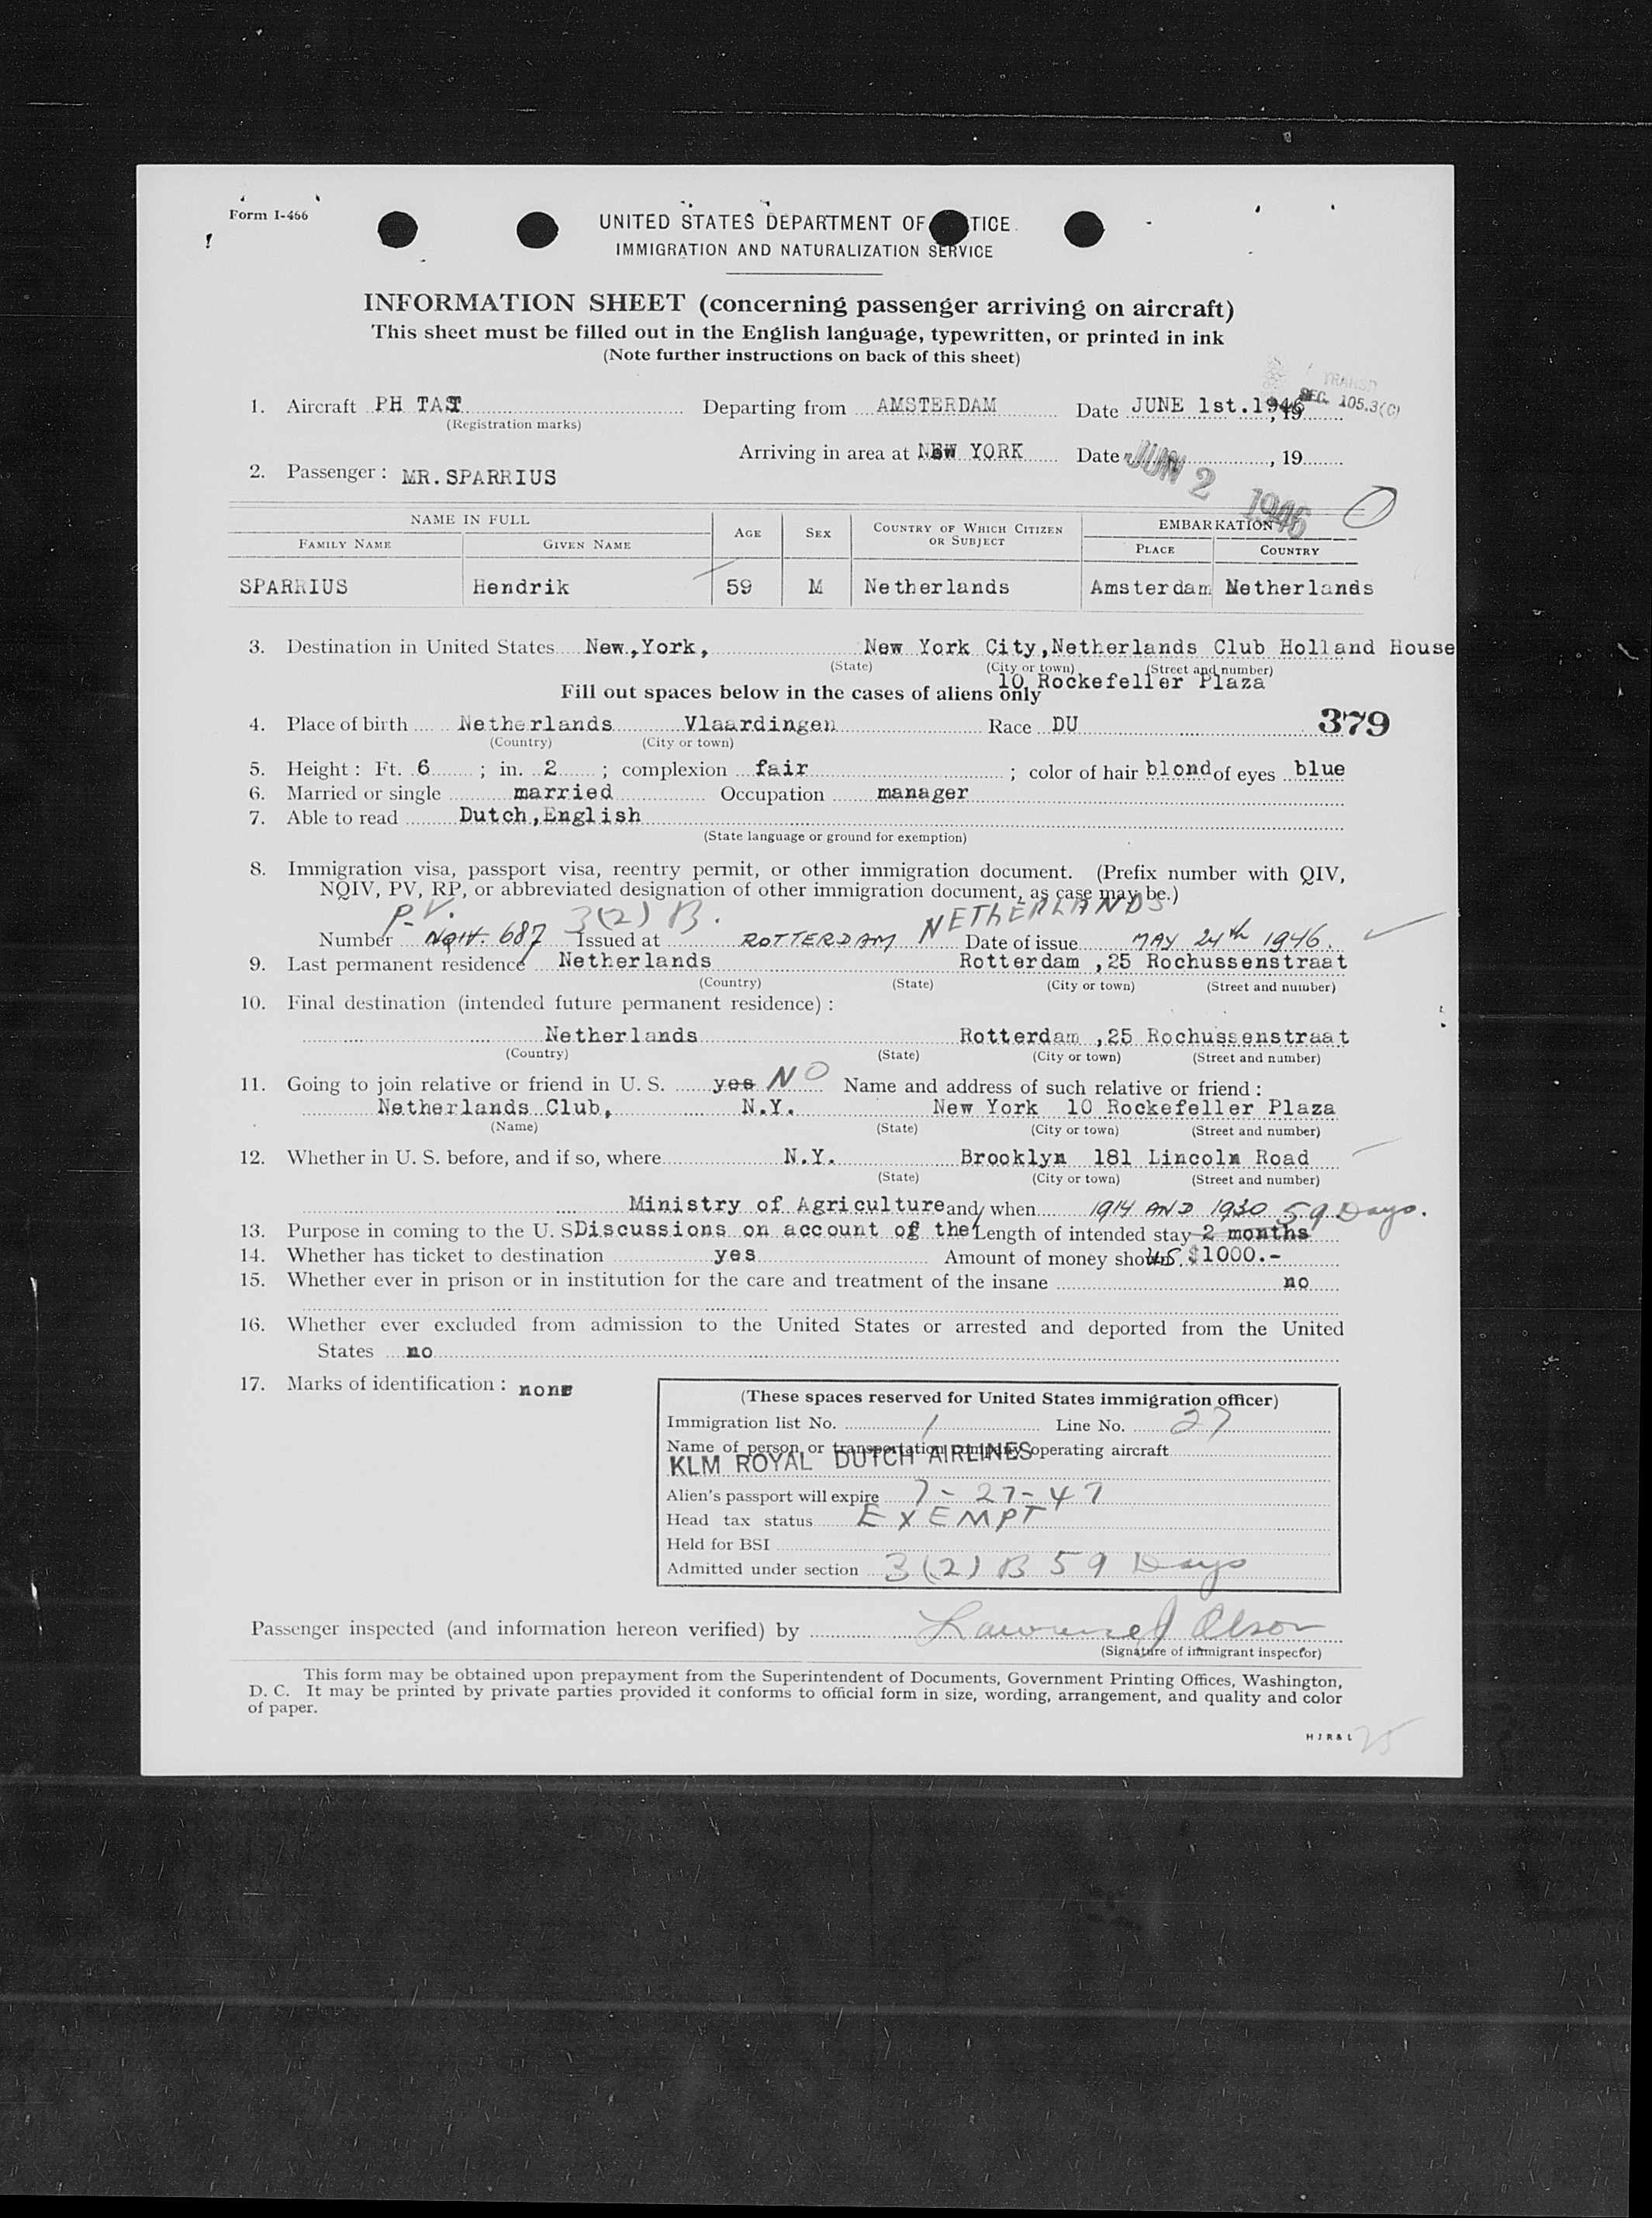 Form I-466
UNITED STATES DEPARTMENT OF TICE
IMMIGRATION AND NATURALIZATION SERVICE
INFORMATION SHEET (concerning passenger arriving on aircraft)
This sheet must be filled out in the English language, typewritten, or printed in ink
(Note further instructions on back of this sheet)
TRANSD
SEC. 105.3(C)
1. Aircraft PH TAT Departing from AMSTERDAM Date JUNE 1st.1946, 19
(Registration marks)
Arriving in area at NEW YORK Date JUN 2 1946, 19
2. Passenger: MR.SPARRIUS
NAME IN FULL AGE SEX COUNTRY OF WHICH CITIZEN OR SUBJECT EMBARKATION
FAMILY NAME GIVEN NAME PLACE COUNTRY
SPARRIUS Hendrik 59 M Netherlands Amsterdam Netherlands
3. Destination in United States New,York, New York City,Netherlands Club Holland House
(State) (City or town) (Street and number)
10 Rockefeller Plaza
Fill out spaces below in the cases of aliens only
4. Place of birth Netherlands Vlaardingen Race DU 379
(Country) (City or town)
5. Height: Ft. 6; in. 2; complexion fair; color of hair blond of eyes blue
6. Married or single married Occupation manager
7. Able to read Dutch,English
(State language or ground for exemption)
8. Immigration visa, passport visa, reentry permit, or other immigration document. (Prefix number with QIV,
NQIV, PV, RP, or abbreviated designation of other immigration document, as case may be.)
P.V. 3(2) B. NETHERLANDS
Number 687 Issued at ROTTERDAM Date of issue MAY 24th 1946.
9. Last permanent residence Netherlands Rotterdam ,25 Rochussenstraat
(Country) (State) (City or town) (Street and number)
10. Final destination (intended future permanent residence):
Netherlands Rotterdam ,25 Rochussenstraat
(Country) (State) (City or town) (Street and number)
11. Going to join relative or friend in U. S. yes NO Name and address of such relative or friend:
Netherlands Club, N.Y. New York 10 Rockefeller Plaza
(Name) (State) (City or town) (Street and number)
12. Whether in U. S. before, and if so, where N.Y. Brooklyn 181 Lincoln Road
(State) (City or town) (Street and number)
Ministry of Agriculture and when 1914 AND 1930 59 Days.
13. Purpose in coming to the U. S. Discussions on account of the Length of intended stay 2 months
14. Whether has ticket to destination yes Amount of money shown U.S. $1000.-
15. Whether ever in prison or in institution for the care and treatment of the insane no
16. Whether ever excluded from admission to the United States or arrested and deported from the United
States no
17. Marks of identification: none
(These spaces reserved for United States immigration officer)
Immigration list No. 1 Line No. 27
Name of person or transportation company operating aircraft
KLM ROYAL DUTCH AIRLINES
Alien's passport will expire 7-27-47
Head tax status EXEMPT
Held for BSI
Admitted under section 3(2) B 59 Days
Passenger inspected (and information hereon verified) by Lawrence J Olson
(Signature of immigrant inspector)
This form may be obtained upon prepayment from the Superintendent of Documents, Government Printing Offices, Washington,
D. C. It may be printed by private parties provided it conforms to official form in size, wording, arrangement, and quality and color
of paper.
H J R & L
25